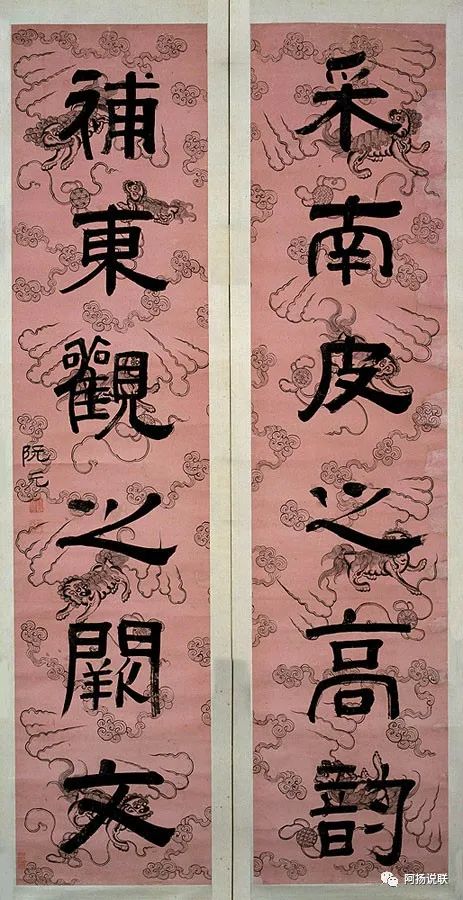 采南皮之高韵
補東觀之闕文
阮元
阿扬说联